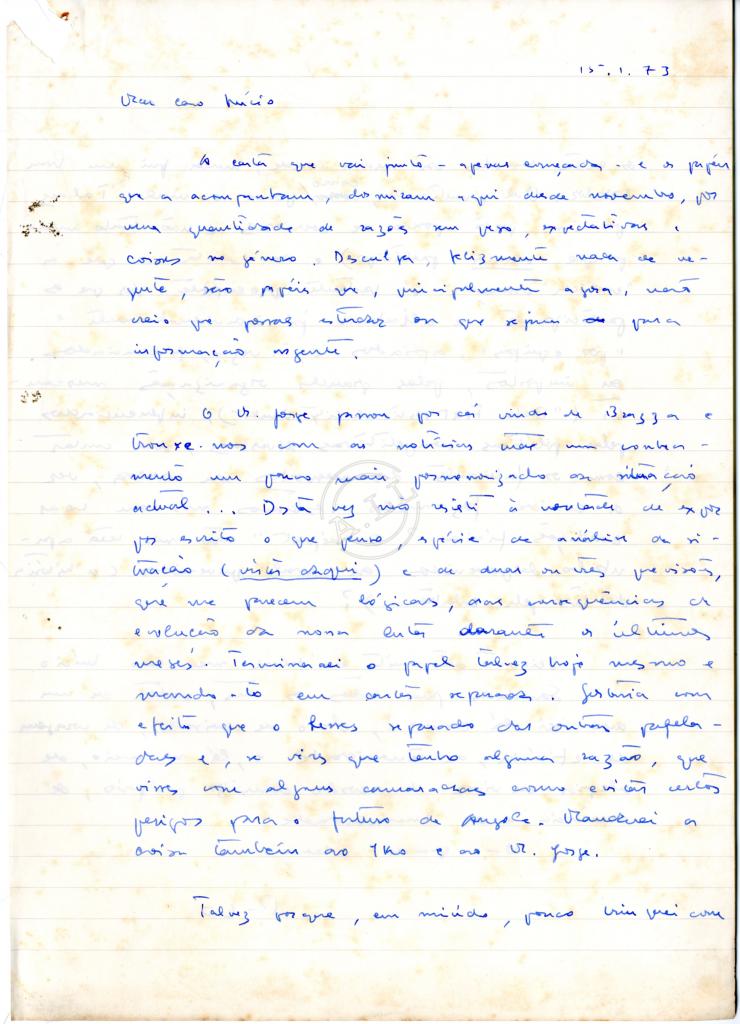 15.1.73
Meu caro Lúcio
A carta que vai junto - apenas começada - e os papéis
que a acompanham, dormiram aqui desde novembro, por
uma quantidade de razões sem peso, expectativas e
coisas no género. Desculpa, felizmente nada de ur-
gente, são papéis que, principalmente agora, não
creio que possas estudar ou que sejam para
informação urgente.
O M. Jorge passou por cá vindo de Brazza e
trouxe-nos com as notícias um conheci-
mento um pouco mais pormenorizado da situação
actual... Desta vez não resisti à vontade de expor
por escrito o que penso, espécie de análise da si-
tuação (vista daqui) e de duas ou três previsões,
que me parecem lógicas, das consequências da
evolução da nossa luta durante os últimos
meses. Terminarei o papel talvez hoje mesmo e
mando-to em carta separada. Gostaria com
efeito que o lesses separado das outras papela-
das e, se vires que tenho alguma razão, que
visses com alguns camaradas como evitar certos
perigos para o futuro de Angola. Mandarei a
coisa também ao Iko e ao M. Jorge.
Talvez porque, em miúdo, pouco brinquei com
A.L.